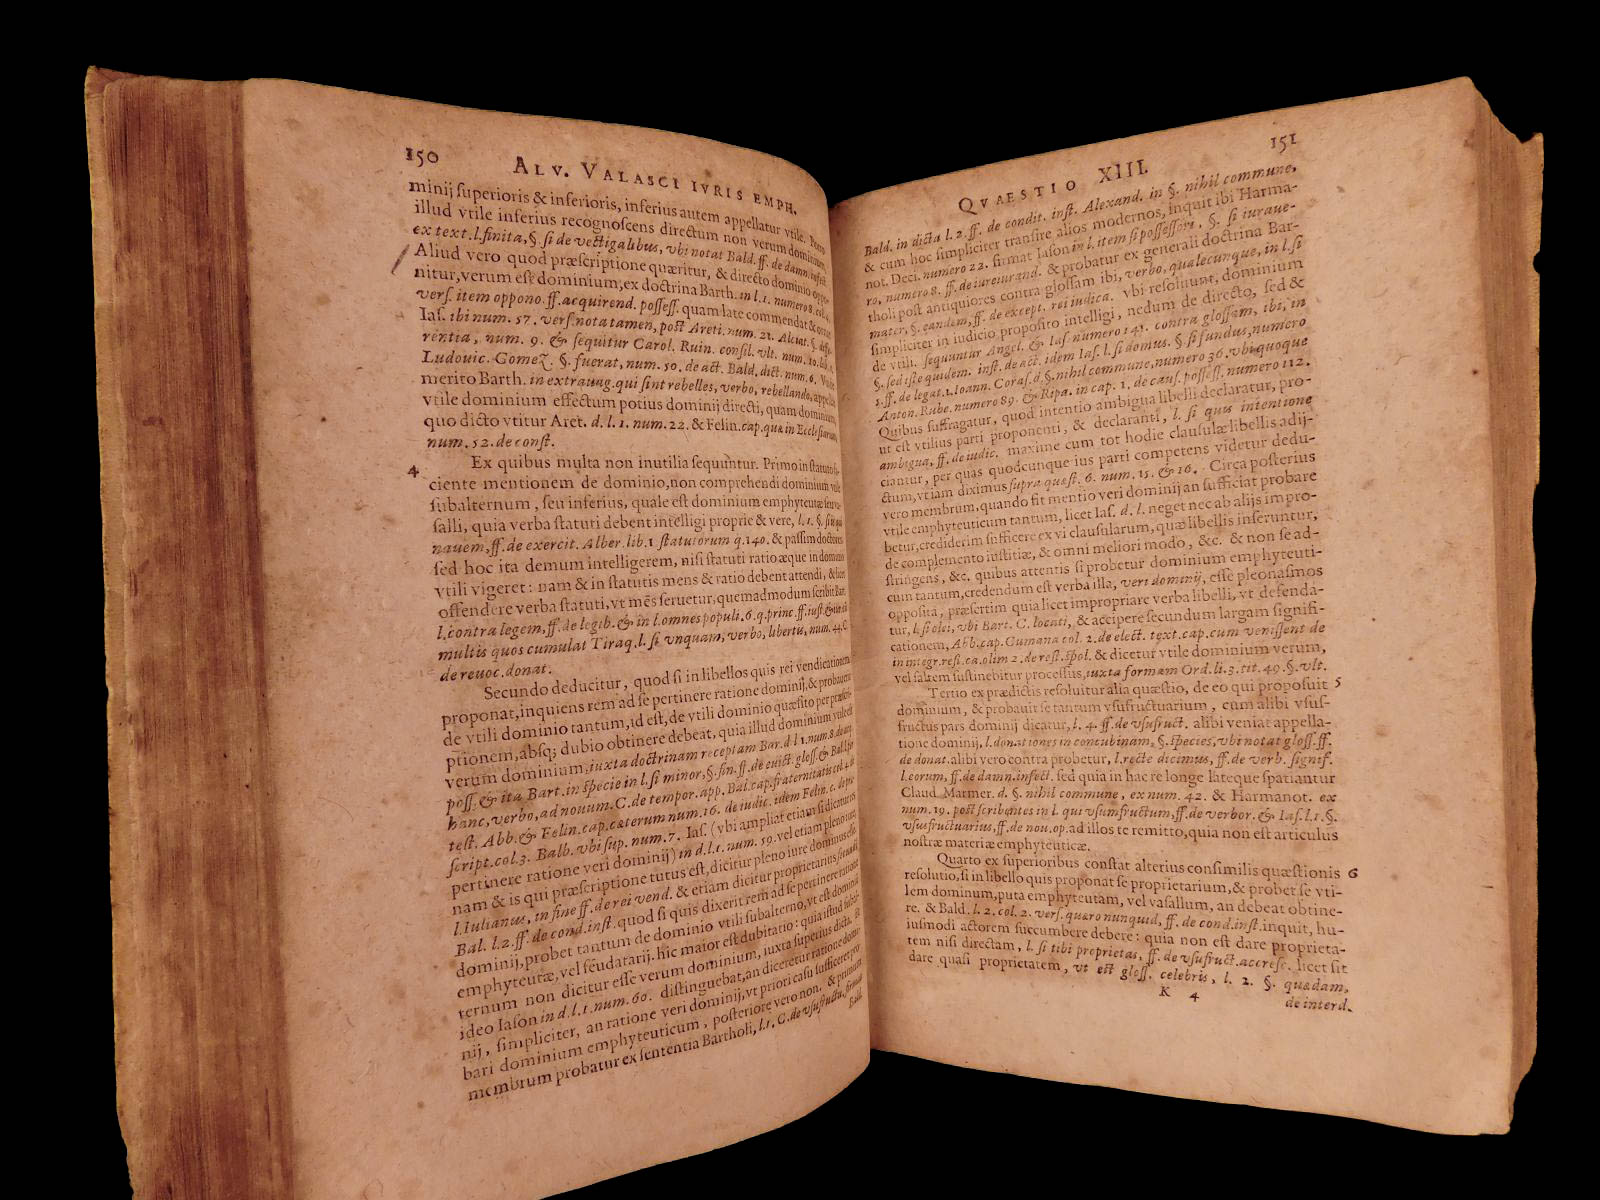 150
ALV. VALASCI IVRIS EMPH.
minij superioris & inferioris, inferius autem appellatur vtile. Porro
illud vtile inferius recognoscens directum non verum dominium,
ex text. l. finita, §. si de vectigalibus, vbi notat Bald. ff. de damn. infect.
Aliud vero quod præscriptione quæritur, & directo dominio oppo-
nitur, verum est dominium, ex doctrina Barth. in l. 1. numero 8. col. 4.
vers. item oppono. ff. acquirend. possess. quam late commendat &
Ias. ibi num. 57. vers. nota tamen, post Areti. num. 21. Alciat. §. diffe-
rentia, num. 9. & sequitur Carol. Ruin. consil. vlt. num. 10. lib.
Ludouic. Gomez. §. fuerat, num. 50. de act. Bald. dict. num. 6. Vnde
merito Barth. in extrauag. qui sint rebelles, verbo, rebellando, appellat
vtile dominium effectum potius dominij directi, quam dominium,
quo dicto vtitur Aret. d. l. 1. num. 22. & Felin. cap. quæ in Ecclesiarum,
num. 52. de const.
4 Ex quibus multa non inutilia sequuntur. Primo in statuto fa-
ciente mentionem de dominio, non comprehendi dominium vtile
subalternum, seu inferius, quale est dominium emphyteutæ seu va-
salli, quia verba statuti debent intelligi proprie & vere, l. 1. §. si is qui
nauem, ff. de exercit. Alber. lib. 1 statutorum q. 140. & passim doctores
sed hoc ita demum intelligerem, nisi statuti ratio æque in dominio
vtili vigeret: nam & in statutis mens & ratio debent attendi, & licet
offendere verba statuti, vt mēs seruetur, quemadmodum scribit Bart.
l. contra legem, ff. de legib. & in l. omnes populi. 6. q. princ. ff. iust. & iur. ex
multis quos cumulat Tiraq. l. si vnquam, verbo, libertis, num. 44. C.
de reuoc. donat.
Secundo deducitur, quod si in libellos quis rei vendicationem
proponat, inquiens rem ad se pertinere ratione dominij, & probauerit
de vtili dominio tantum, id est, de vtili dominio quæsito per præscri-
ptionem, absq; dubio obtinere debeat, quia illud dominium vtile est
verum dominium, iuxta doctrinam receptam Bar. d. l. 1. num. 8. de acq.
poss. & ita Bart. in specie in l. si minor, §. fin. ff. de euict. gloss. & Bal. l. per
hanc, verbo, ad nouum. C. de tempor. app. Bal. cap. fraternitatis col. 4. de
test. Abb. & Felin. cap. cæterum num. 16. de iudic. idem Felin. c. de præ-
script. col. 3. Balb. vbi sup. num. 7. Ias. (vbi ampliat etiam si dicat
pertinere ratione veri dominij) in d. l. 1. num. 59. vel etiam pleno iure,
nam & is qui præscriptione tutus est, dicitur pleno iure dominus esse,
l. Iulianus, in fine ff. de rei vend. & etiam dicitur proprietarius secundum
Bal. l. 2. ff. de cond. inst. quod si quis dixerit rem ad se pertinere ratione
dominij, probet tantum de dominio vtili subalterno, vt est dominij
emphyteutæ, vel feudatarij. hic maior est dubitatio: quia istud subal-
ternum non dicitur esse verum dominium, iuxta superius dicta. Et
ideo Iason in d. l. 1. num. 60. distinguebat, an diceretur ratione domi-
nij, simpliciter, an ratione veri dominij, vt priori casu sufficeret pro-
bari dominium emphyteuticum, posteriore vero non. & primum
membrum probatur ex sententia Bartholi, l. 1. C. de vsufructu, firmat
Bald.
QVAESTIO XIII.
151
Bald. in dicta l. 2. ff. de condit. inst. Alexand. in §. nihil commune,
& cum hoc simpliciter transire alios modernos, inquit ibi Harma-
not. Deci. numero 22. firmat Iason in l. item si possessori, §. si iuraue-
ro, numero 8. ff. de iureiurand. & probatur ex generali doctrina Bar-
tholi post antiquiores contra glossam ibi, verbo, qualecunque, in l. si
mater, §. eandem, ff. de except. rei iudica. vbi resoluunt, dominium
simpliciter in iudicio proposito intelligi, nedum de directo, sed &
de vtili. sequuntur Angel. & Ias. numero 141. contra glossam, ibi, in
§. sed iste quidem. inst. de act. idem Ias. l. si domus. §. si fundus, numero
1. ff. de legat. 1. Ioann. Coras. d. §. nihil commune, numero 36. vbi quoque
Anton. Rube. numero 89. & Ripa. in cap. 1. de caus. possess. numero 112.
Quibus suffragatur, quod intentio ambigua libelli declaratur, pro-
ut est vtilius parti proponenti, & declaranti, l. si quis intentione
ambigua, ff. de iudic. maxime cum tot hodie clausulæ libellis adij-
ciantur, per quas quodcunque ius parti competens videtur dedu-
ctum, vt iam diximus supra quæst. 6. num. 15. & 16. Circa posterius
vero membrum, quando fit mentio veri dominij an sufficiat probare
vtile emphyteuticum tantum, licet Ias. d. l. neget nec ab alijs impro-
betur, crediderim sufficere ex vi clausularum, quæ libellis inseruntur,
de complemento iustitiæ, & omni meliori modo, &c. & non se ad-
stringens, &c. quibus attentis si probetur dominium emphyteuti-
cum tantum, credendum est verba illa, veri dominij, esse pleonasmos
opposita, præsertim quia licet impropriare verba libelli, vt defenda-
tur, l. si olei, vbi Bart. C. locati, & accipere secundum largam signifi-
cationem, Abb. cap. Cumana col. 2. de elect. text. cap. cum venissent de
in integr. rest. ca. olim 2. de rest. spol. & dicetur vtile dominium verum,
vel saltem sustinebitur processus, iuxta formam Ord. li. 3. tit. 49. §. vlt.
Tertio ex prædictis resoluitur alia quæstio, de eo qui proposuit 5
dominium, & probauit se tantum vsufructuarium, cum alibi vsus-
fructus pars dominij dicatur, l. 4. ff. de vsufruct. alibi veniat appella-
tione dominij, l. donationes in concubinam, §. species, vbi notat gloss. ff.
de donat. alibi vero contra probetur, l. recte dicimus, ff. de verb. signif.
l. eorum, ff. de damn. infect. sed quia in hac re longe lateque spatiantur
Claud. Marmer. d. §. nihil commune, ex num. 42. & Harmanot. ex
num. 19. post scribentes in l. qui vsumfructum, ff. de verbor. & Ias. l. 1. §.
vsusfructuarius, ff. de nou. op. ad illos te remitto, quia non est articulus
nostræ materiæ emphyteuticæ.
Quarto ex superioribus constat alterius consimilis quæstionis 6
resolutio, si in libello quis proponat se proprietarium, & probet se vti-
lem dominum, puta emphyteutam, vel vasallum, an debeat obtine-
re. & Bald. l. 2. col. 2. vers. quæro nunquid, ff. de cond. inst. inquit, hu-
iusmodi actorem succumbere debere: quia non est dare proprieta-
tem nisi directam, l. si tibi proprietas, ff. de vsufruct. accresc. licet sit
dare quasi proprietatem, vt est gloss. celebris, l. 2. §. quædam,
K 4
de interd.